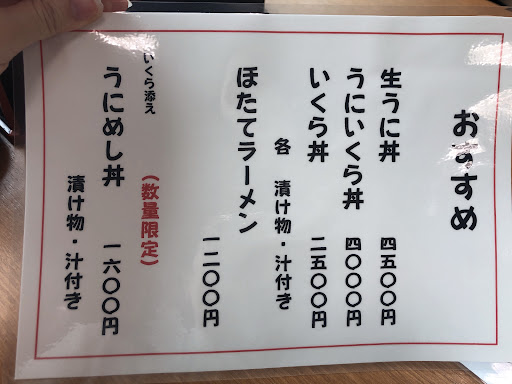 おすすめ
生うに丼 四五〇〇円
うにいくら丼 四〇〇〇円
いくら丼 二五〇〇円
各 漬け物・汁付き
ほたてラーメン 一二〇〇円
(数量限定)
いくら添え
うにめし丼 一六〇〇円
漬け物・汁付き